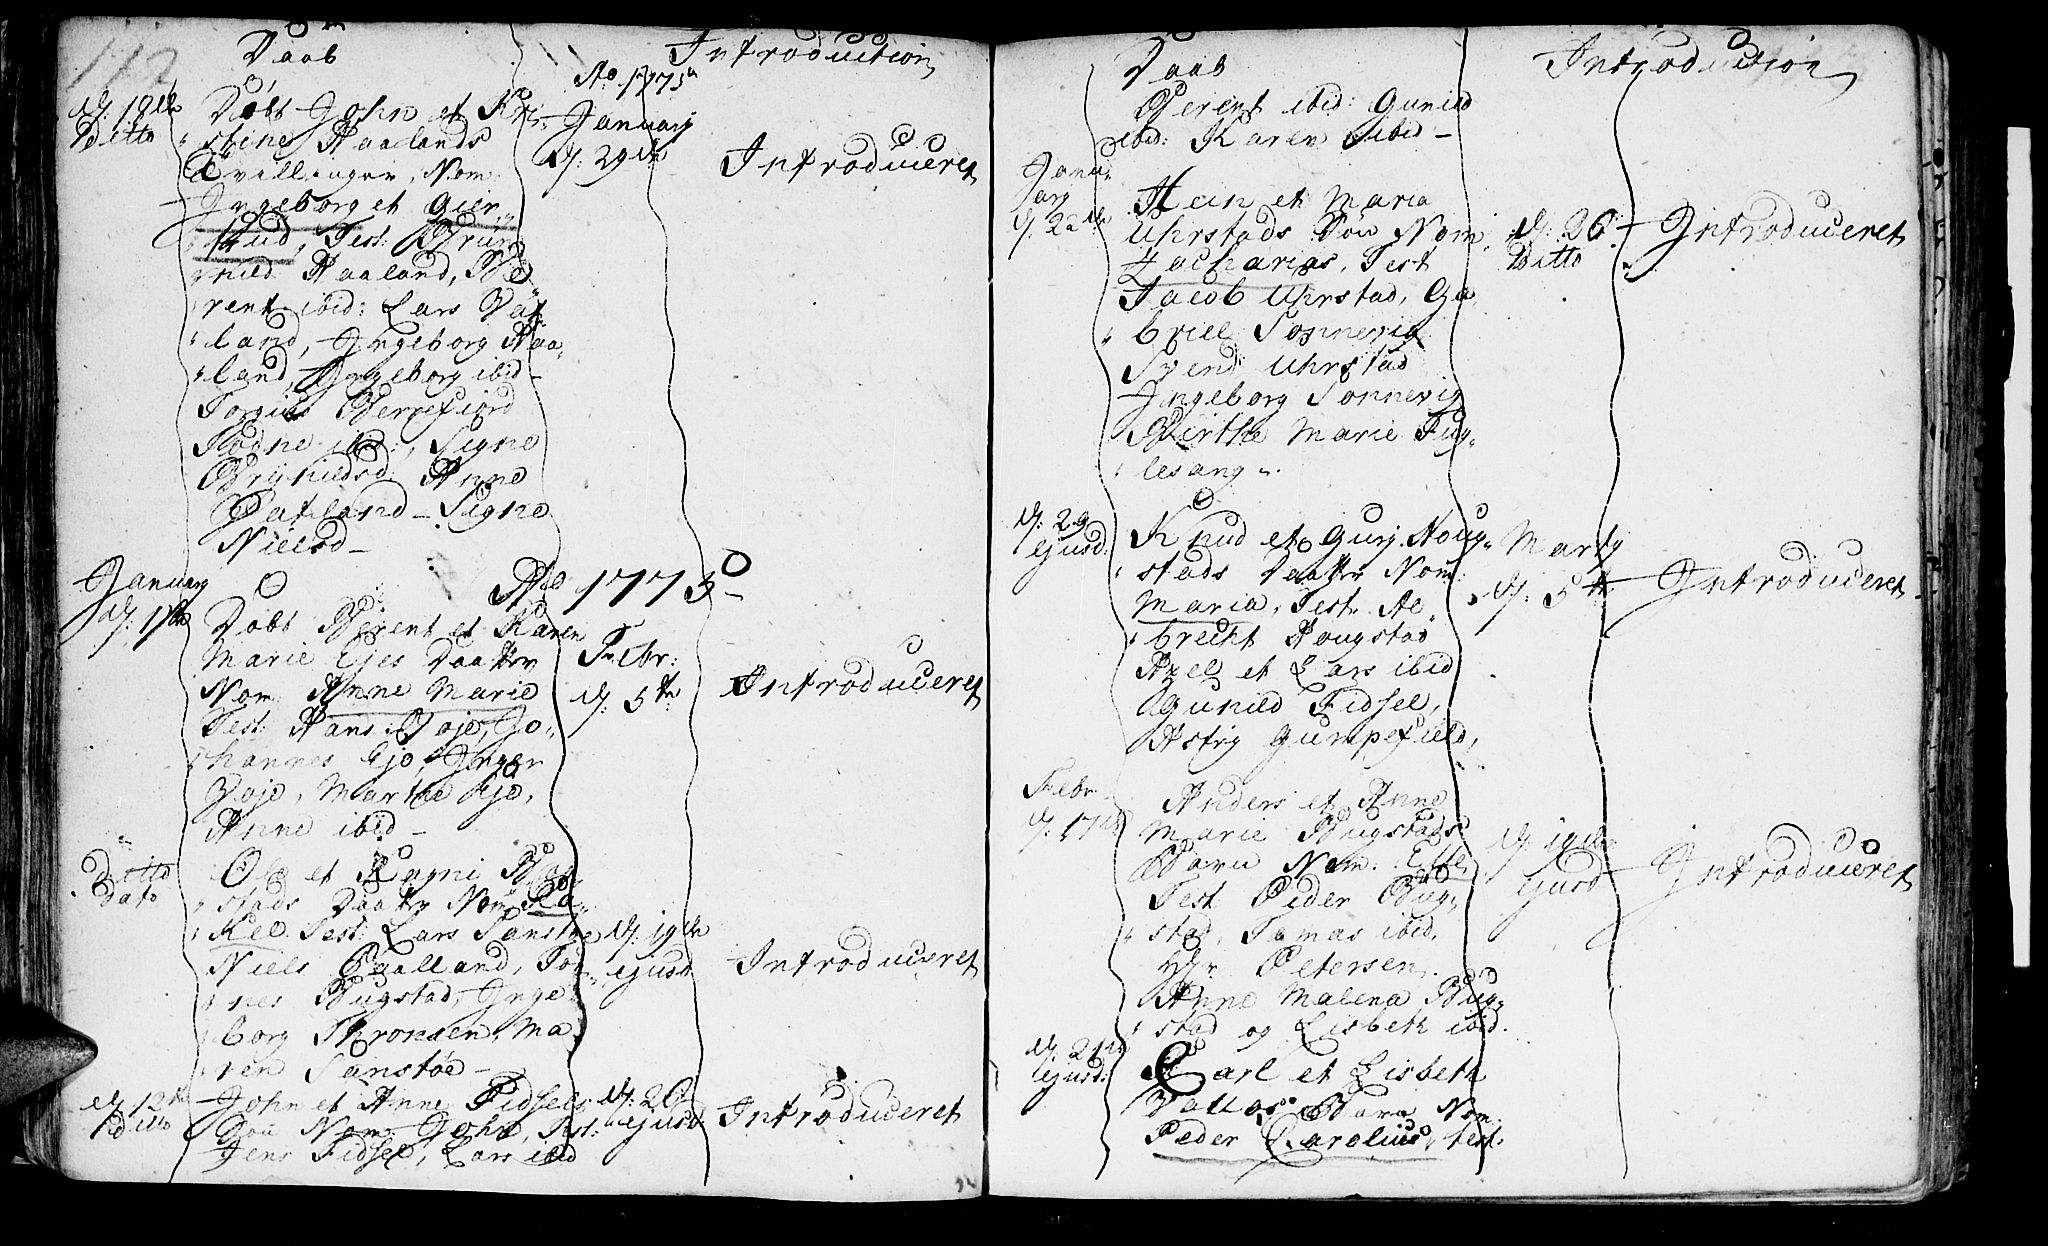 172
Daab
Introduction
Ao 1775
d. 18de
Ditto
Döbt John et Kri-
stines Haalands
Tvillinger, Nom.
Ingeborg et Gier-
trud, Test: Brün-
nild Haaland, Be-
rent ibid: Lars Vat-
land, Ingeborg Haa-
land, Ingeborg ibid -
Torgius Berrefiord
Signe
Brynildsd: Anne
Vatland - Signe
Nielsd -
January
d. 29de
Introduceret
Ao 1775
January
Döbt Berent et Karen
Marie Ejes Daatter
Nom. Anne Marie
Test: Hans Voje, Jo-
hannes Eje, Inger
Voje, Marthe Eje,
Anne ibid -
Febr:
d. 5te
Introduceret
Ditto
Dato
Ole et
stads Daatter Nom Ra-
kel. Test: Lars Sanstøe
Niels
nes Bugstad, Inge-
borg Thronsen, Ma-
ren Sanstöe -
d. 19de
ejusd.
Introduceret
d. 12te
Ditto
John et Anne Fidsels
Søn Nom. John, Test:
Jens Fidsel, Lars ibid
d. 26
ejusd
Introduceret
Daab
Introduction
Berent ibid: Gunild
ibid: Karen ibid -
Janu-
ary
d. 22de
Hein et Maria
Uhrstads Søn Nom.
Zacharias, Test
Jacob Uhrstad, Ga-
briel Sonnevig
Svend Uhrstad
Ingeborg Sonnevig
Birthe Marie Fug-
lesang -
d. 26
Ditto
Introduceret
d. 29
ejusd.
Knud et Gurj Houg-
stads Daatter Nom:
Maria, Test. Al-
brecht Hougstad
Axel et Lars ibid
Gunild Fidsel,
Astrig Gumpefield,
Marty
d. 5te
Introduceret
Febr.
d. 17de
Anders et Anne
Marie Bugstads
Barn Nom. Else
Test Peder Bug-
stad, Tomas ibid,
Hr. Petersen,
Anne Malena Bug-
stad og Lisbeth ibid.
d. 19de
ejusd
Introduceret
d. 21de
ejusd:
Carl et Lisbeth
Barn Nom.
Peder Carolius, test: